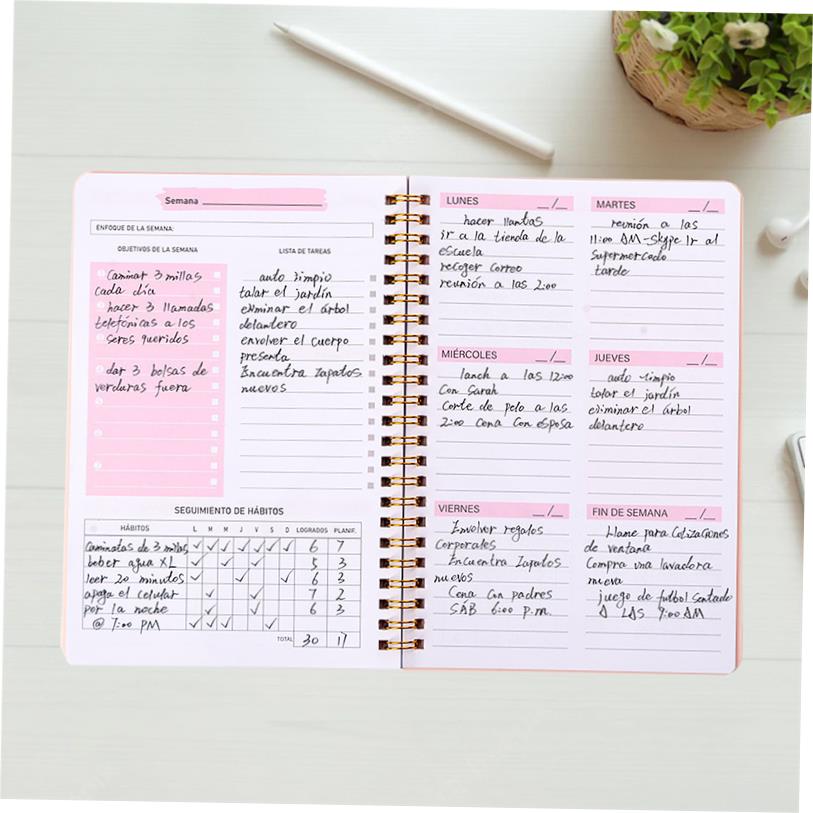 Semana
ENFOQUE DE LA SEMANA:
OBJETIVOS DE LA SEMANA
Caminar 3 millas
cada día
hacer 3 llamadas
telefónicas a los
seres queridos
dar 3 bolsas de
verduras fuera
LISTA DE TAREAS
auto limpio
talar el jardín
eliminar el árbol
delantero
envolver el cuerpo
presenta
Encuentra Zapatos
nuevos
SEGUIMIENTO DE HÁBITOS
HÁBITOS L M M J V S D LOGRADOS PLANIF.
caminatas de 3 millas ✓ ✓ ✓ ✓ ✓ ✓ ✓ 6 7
beber agua XL ✓ ✓ ✓ 5 3
leer 20 minutos ✓ ✓ ✓ 6 3
apaga el celular ✓ ✓ 7 2
por la noche ✓ ✓ 6 3
@ 7:00 PM ✓ ✓ ✓ ✓
TOTAL 30 17
LUNES __/__
hacer llantas
ir a la tienda de la
escuela
recoger correo
reunión a las 2:00
MARTES __/__
reunión a las
11:00 AM-Skype Ir al
supermercado
tarde
MIÉRCOLES __/__
lanch a las 12:00
Con Sarah
Corte de pelo a las
2:00 Cena Con esposa
JUEVES __/__
auto limpio
talar el jardín
eliminar el árbol
delantero
VIERNES __/__
Envolver regalos
Corporales
Encuentra Zapatos
nuevos
Cena con padres
SÁB 6:00 p.m.
FIN DE SEMANA __/__
Llame para Cotizaciones
de ventana
Compra una lavadora
nueva
juego de futbol Sentado
A LAS 9:00 AM